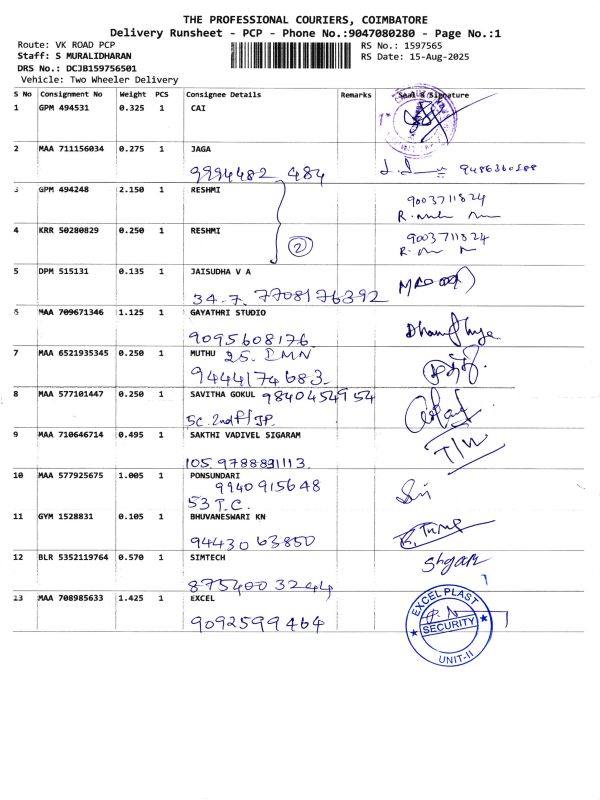 THE PROFESSIONAL COURIERS, COIMBATORE
Delivery Runsheet - PCP - Phone No.:9047080280 - Page No.:1
Route: VK ROAD PCP RS No.: 1597565
Staff: S MURALIDHARAN RS Date: 15-Aug-2025
DRS No.: DCJB159756501
Vehicle: Two Wheeler Delivery
S No Consignment No Weight PCS Consignee Details Remarks Seal & Signature
1 GPM 494531 0.325 1 CAI
2 MAA 711156034 0.275 1 JAGA
9994482 484 9486360588
3 GPM 494248 2.150 1 RESHMI
9003711824
4 KRR 50280829 0.250 1 RESHMI
2 9003711824
5 DPM 515131 0.135 1 JAISUDHA V A
34.7. 7708176392
6 MAA 709671346 1.125 1 GAYATHRI STUDIO
9095608176
7 MAA 6521935345 0.250 1 MUTHU 25.
9444174683.
8 MAA 577101447 0.250 1 SAVITHA GOKUL 9840454954
5C. 2nd f/
9 MAA 710646714 0.495 1 SAKTHI VADIVEL SIGARAM
T/W
105. 9788831113.
10 MAA 577925675 1.005 1 PONSUNDARI
9940915648
53 T.C.
11 GYM 1528831 0.105 1 BHUVANESWARI KN
94430 63850
12 BLR 5352119764 0.570 1 SIMTECH
8754003244
13 MAA 708985633 1.425 1 EXCEL
9092599464
EXCEL PLAST
SECURITY
UNIT-II